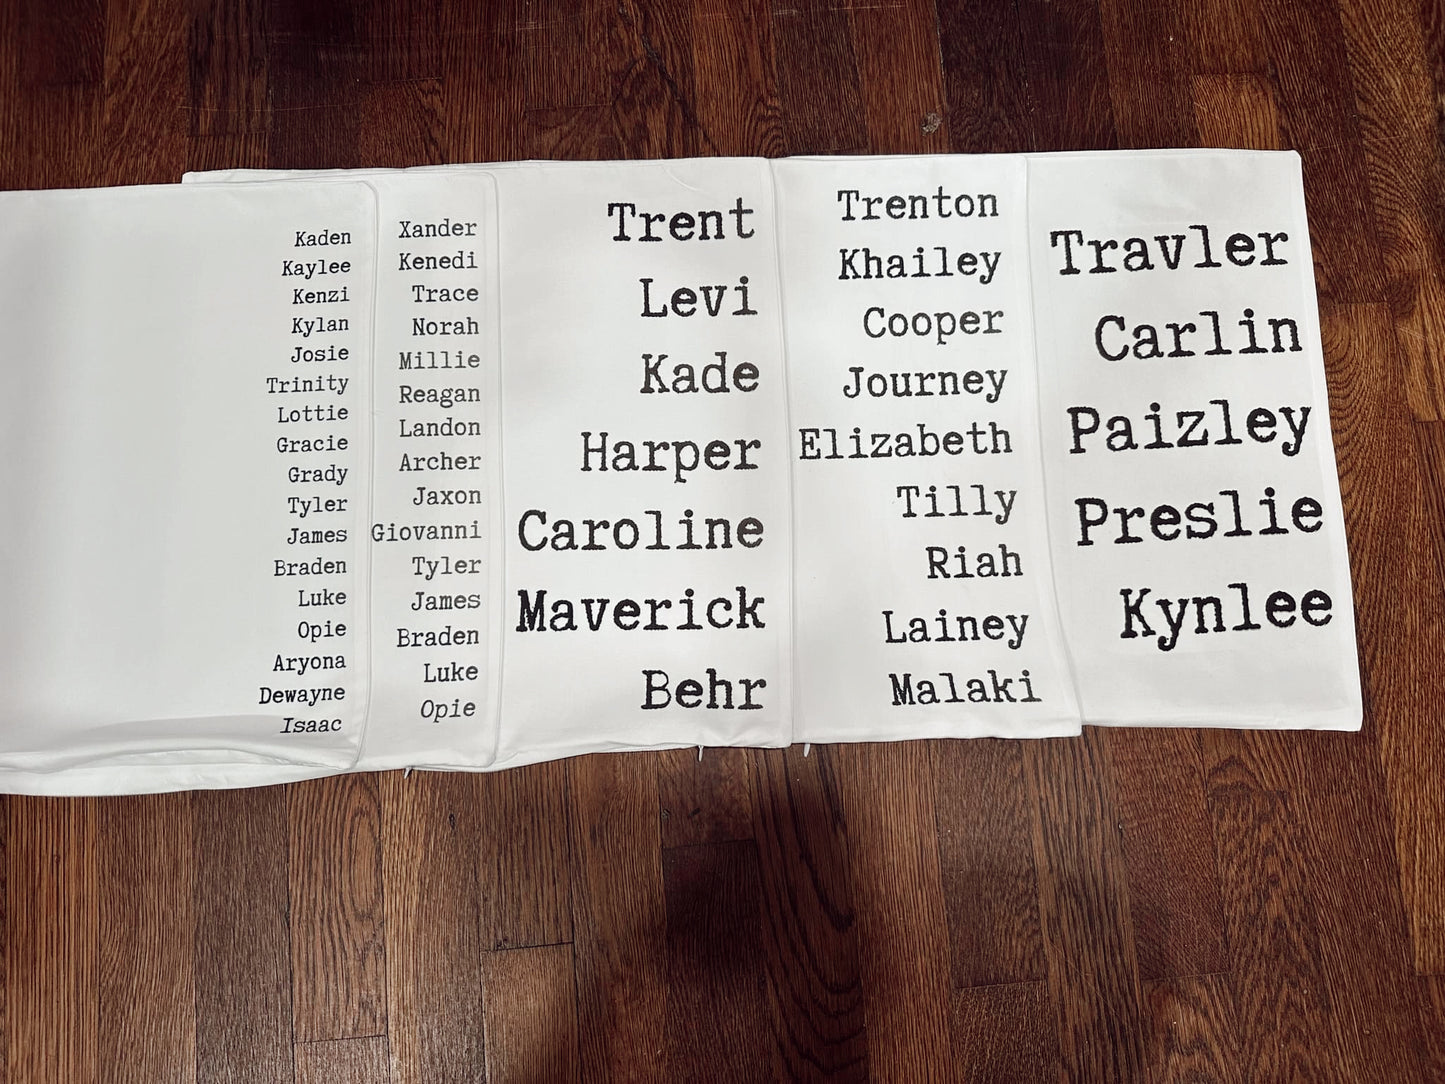 Kaden
Kaylee
Kenzi
Kylan
Josie
Trinity
Lottie
Gracie
Grady
Tyler
James
Braden
Luke
Opie
Aryona
Dewayne
Isaac
Xander
Kenedi
Trace
Norah
Millie
Reagan
Landon
Archer
Jaxon
Giovanni
Tyler
James
Braden
Luke
Opie
Trent
Levi
Kade
Harper
Caroline
Maverick
Behr
Trenton
Khailey
Cooper
Journey
Elizabeth
Tilly
Riah
Lainey
Malaki
Travler
Carlin
Paizley
Preslie
Kynlee